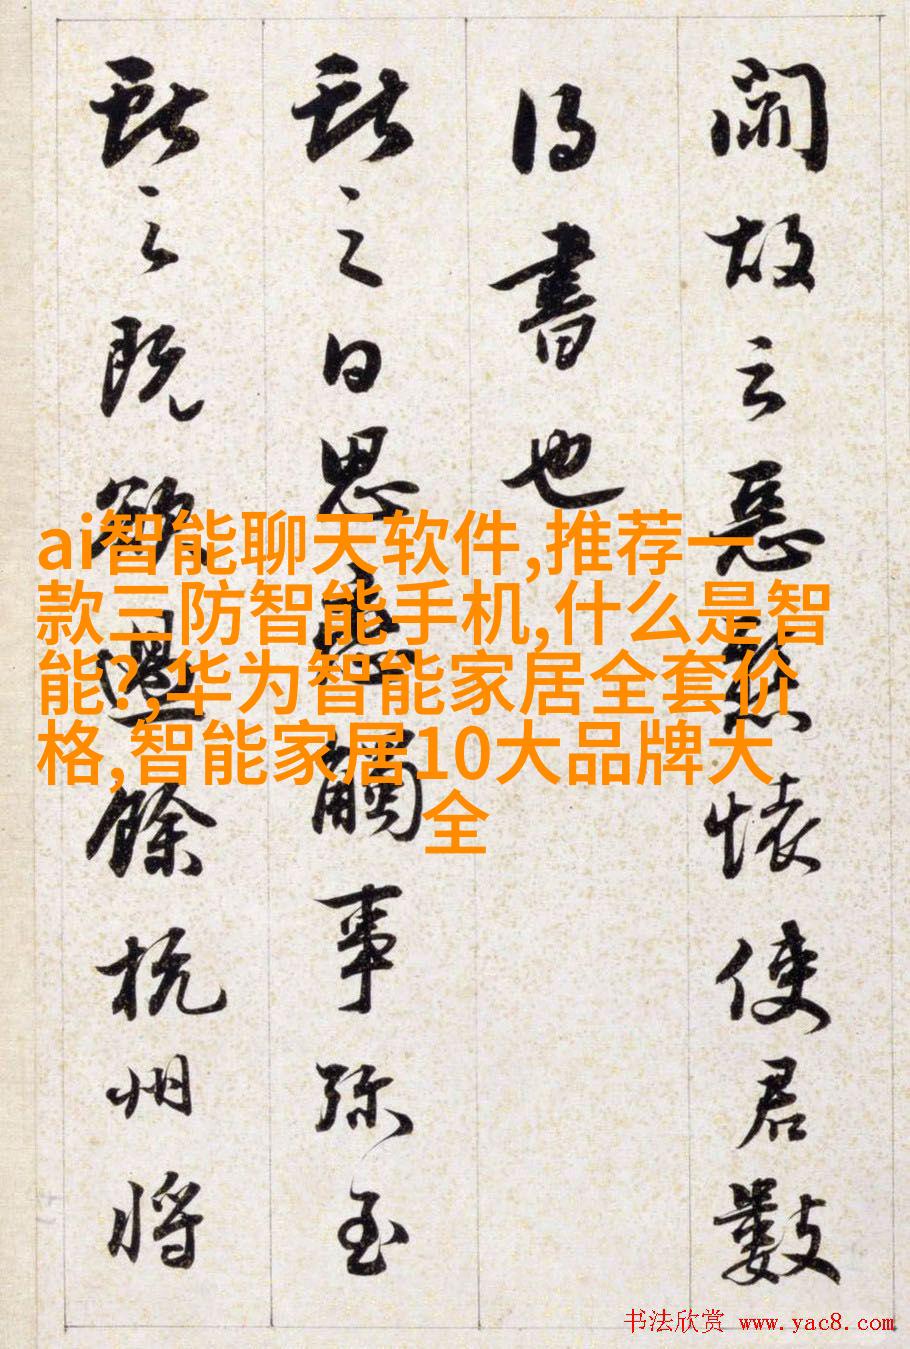 故云惡懸懷使君數
得書也
獻之白思戀觸事弥至
獻之既欲過餘杭州將
ai智能聊天软件,推荐一
款三防智能手机,什么是智
能?,华为智能家居全套价
格,智能家居10大品牌大
全
书法欣赏 www.yac8.com